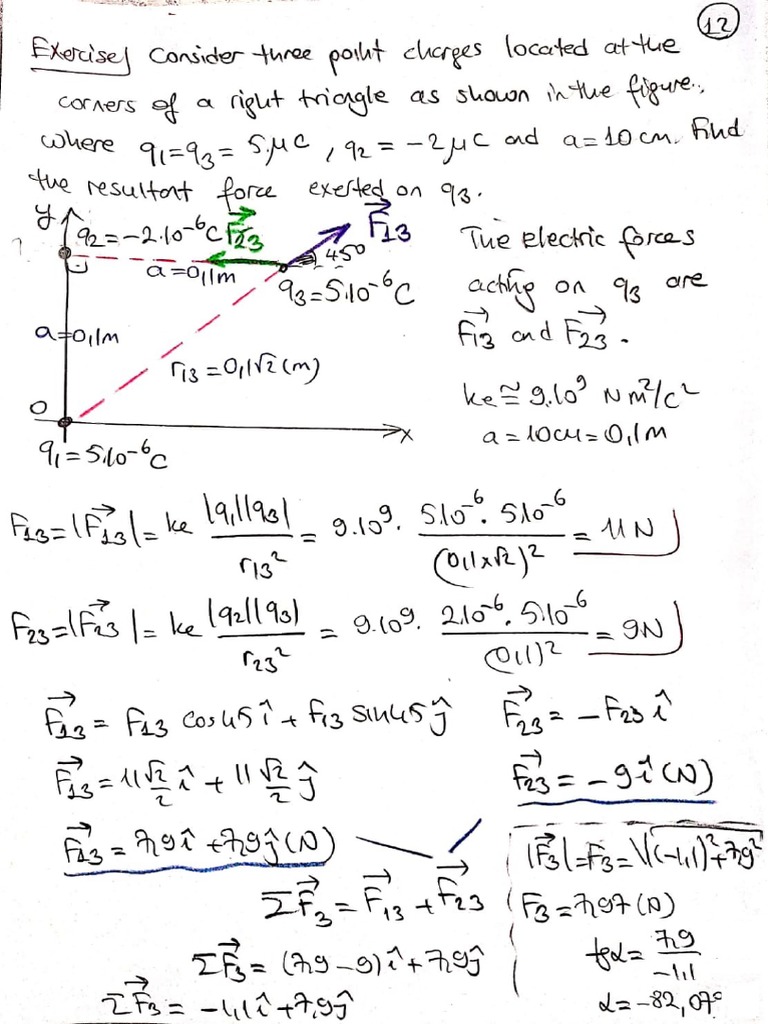 12
Exercise) Consider three point charges located at the
corners of a right triangle as shown in the figure,
where q₁=q₃= 5μC , q₂ = -2μC and a=10cm. Find
the resultant force exerted on q₃.
y
q₂=-2.10⁻⁶C F⃗₂₃
F⃗₁₃
45°
a=0,1m
q₃=5.10⁻⁶C
a=0,1m
r₁₃=0,1√2 (m)
0
x
q₁=5.10⁻⁶C
The electric forces
acting on q₃ are
F⃗₁₃ and F⃗₂₃ .
ke ≅ 9.10⁹ Nm²/C²
a=10cm=0,1m
F₁₃=|F⃗₁₃|= ke |q₁||q₃| / r₁₃² = 9.10⁹. 5.10⁻⁶. 5.10⁻⁶ / (0,1x√2)² = 11N
F₂₃=|F⃗₂₃|= ke |q₂||q₃| / r₂₃² = 9.10⁹. 2.10⁻⁶. 5.10⁻⁶ / (0,1)² = 9N
F⃗₁₃ = F₁₃ cos45 î + F₁₃ sin45 ĵ
F⃗₂₃ = -F₂₃ î
F⃗₁₃ = 11 √2/2 î + 11 √2/2 ĵ
F⃗₂₃ = -9î (N)
F⃗₁₃ = 7,9î + 7,9ĵ (N)
ΣF⃗₃ = F⃗₁₃ + F⃗₂₃
ΣF⃗₃ = (7,9-9)î + 7,9ĵ
ΣF⃗₃ = -1,1î + 7,9ĵ
|F⃗₃|=F₃=√(-1,1)²+7,9²
F₃=7,97 (N)
tgα = 7,9 / -1,1
α=-82,07°